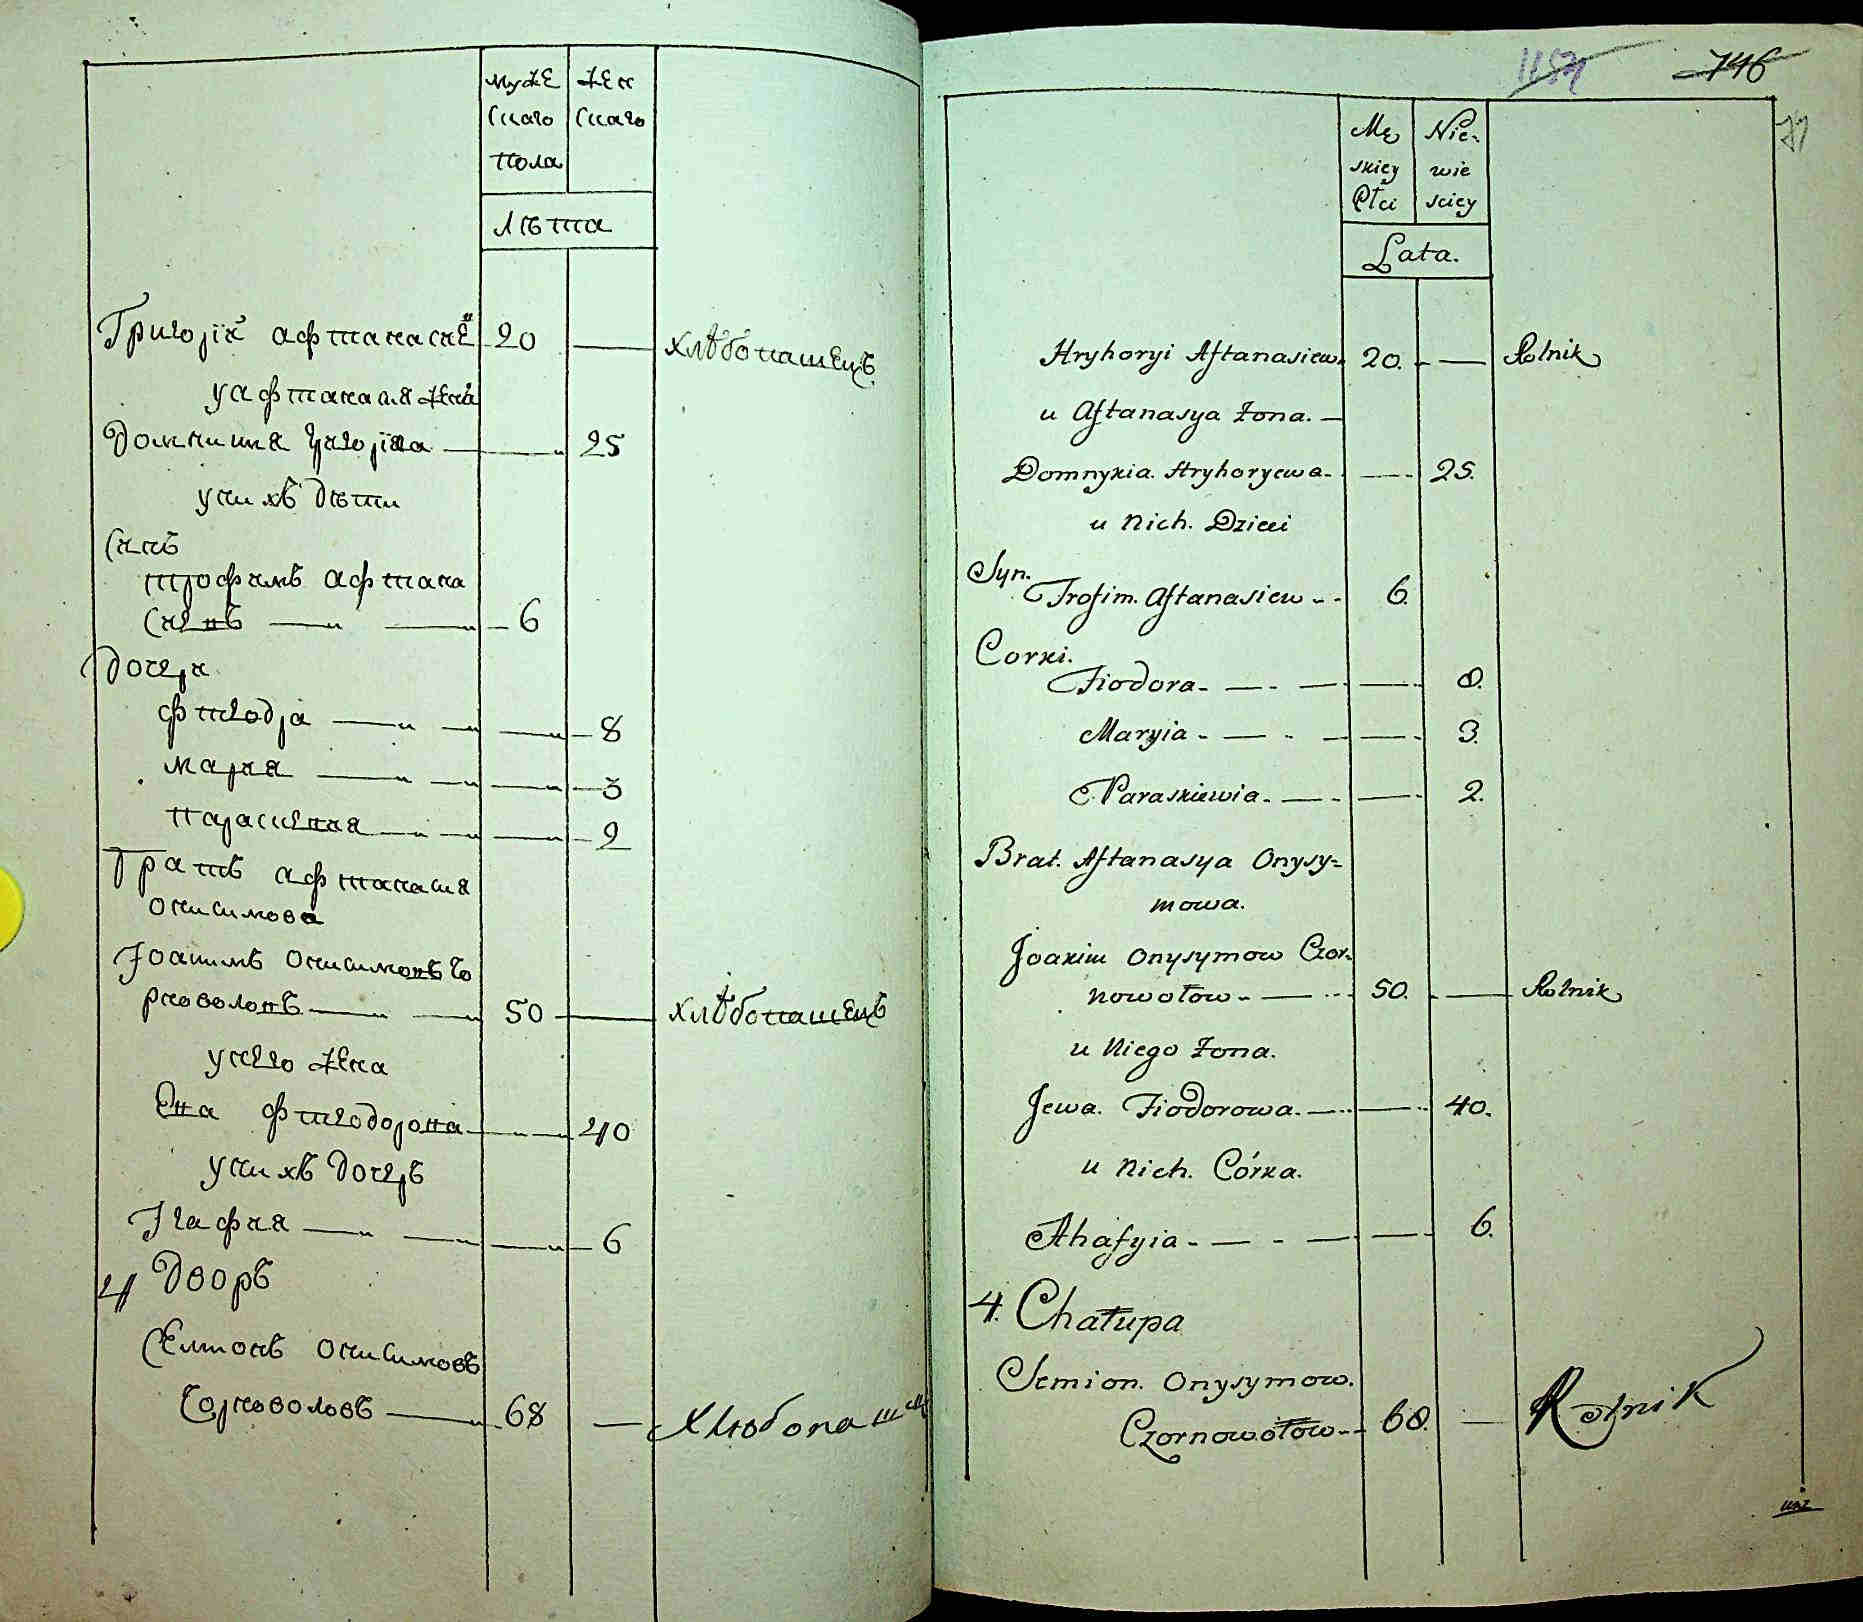 муже
скаго
пола
жен
скаго
лѣта
Григорій афтанасиев 20 — хлѣбопашецъ
у афтанасия жена
Домникия григориева — 25
у них дѣти
Сынъ
трофимъ афтана
сиевъ — 6
Дочери
фтеодора — 8
мария — 3
параскевия — 2
Братъ афтанасия
онисимова
Іоакимъ онисимовъ чо
рноволовъ — 50 — хлѣбопашецъ
у него жена
Ева фтеодорова — 40
у нихъ дочерь
Агафия — 6
4 Дворъ
Семионъ онисимовъ
Чорноволовъ — 68 — хлюбопаш
1157 746
71
Mę
skiey
Płci
Nie-
wie
sciey
Lata.
Hryhoryi Aftanasiew. 20. — Rolnik
u Aftanasya Żona. —
Domnykia. Hryhoryewa. — 25.
u Nich. Dzieci
Syn.
Trofim. Aftanasiew - - 6.
Corki.
Fiodora - — - — 8.
Maryia - — - — 3.
Paraskiewia. — - — 2.
Brat. Aftanasya Onysy=
mowa.
Joakim Onysymow Czor.
nowołow - — 50. — Rolnik
u Niego Żona.
Jewa. Fiodorowa. — 40.
u Nich. Córka.
Ahafyia - — - — 6.
4. Chałupa
Semion. Onysymow.
Czornowołow - - 68. — Rolnik